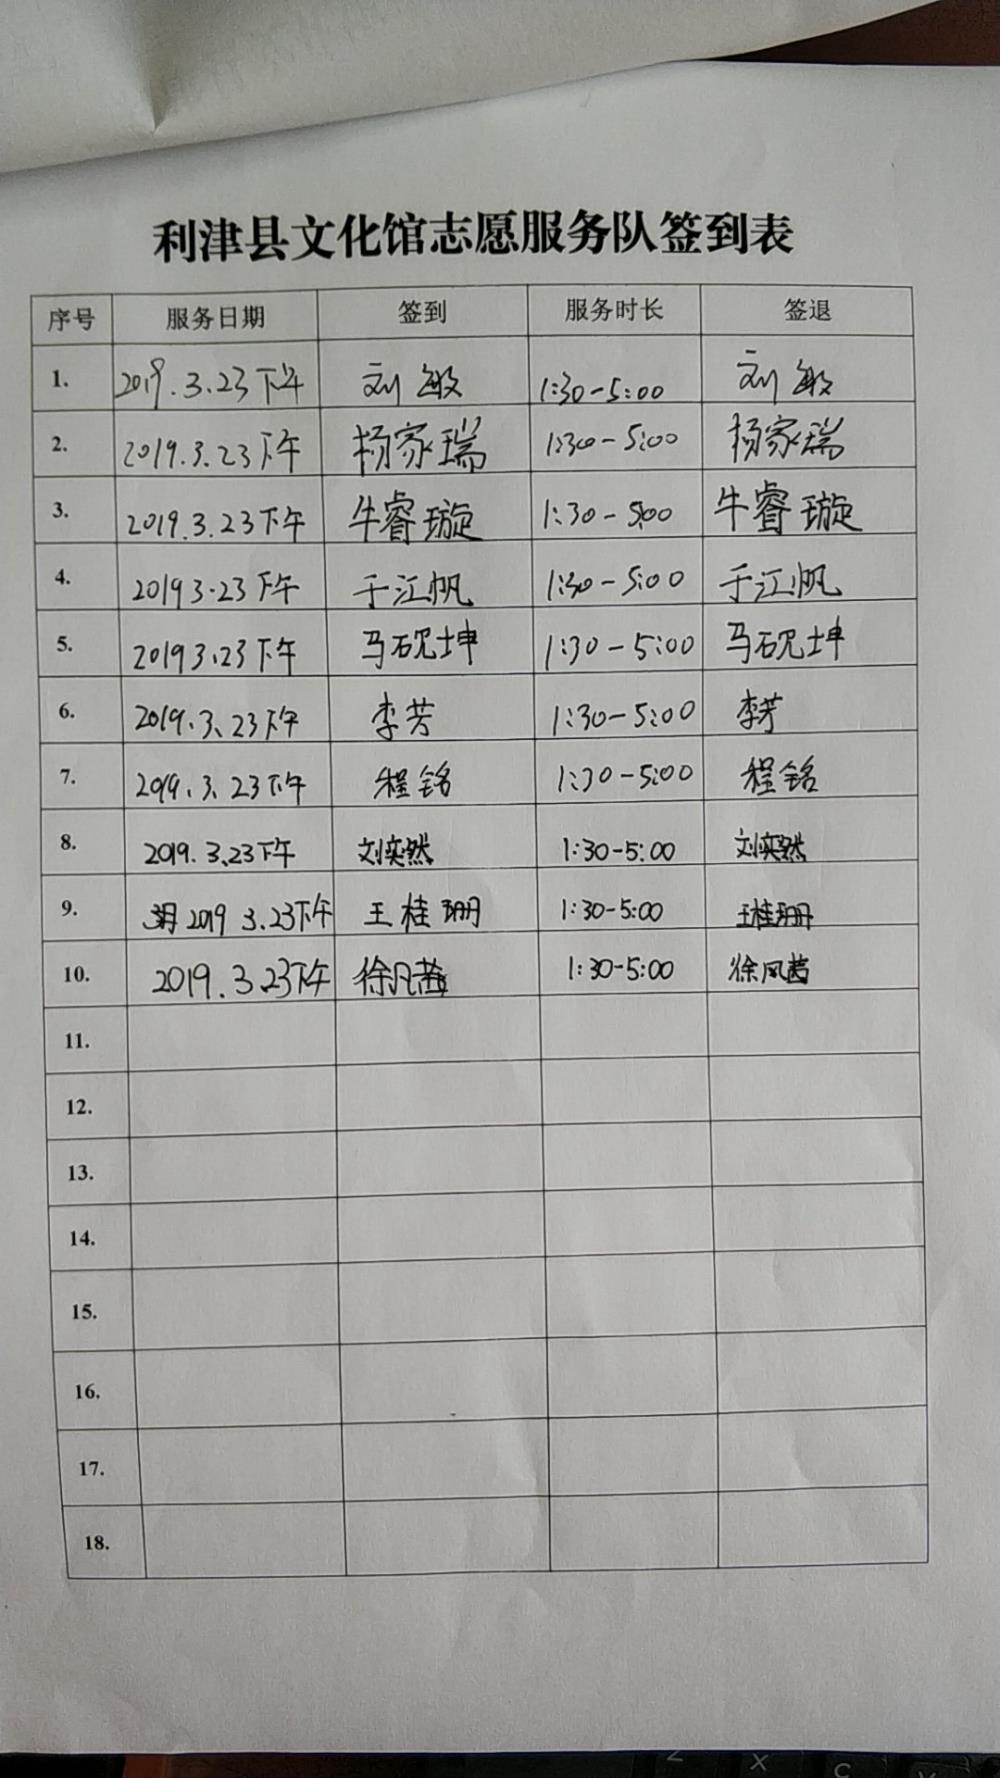 利津县文化馆志愿服务队签到表
序号 服务日期 签到 服务时长 签退
1. 2019.3.23下午 刘敏 1:30-5:00 刘敏
2. 2019.3.23下午 杨家瑞 1:30-5:00 杨家瑞
3. 2019.3.23下午 牛睿璇 1:30-5:00 牛睿璇
4. 2019 3.23下午 于江帆 1:30-5:00 于江帆
5. 2019 3.23下午 马砚坤 1:30-5:00 马砚坤
6. 2019.3.23下午 李芳 1:30-5:00 李芳
7. 2019.3.23下午 程铭 1:30-5:00 程铭
8. 2019.3.23下午 刘奕然 1:30-5:00 刘奕然
9. 2019 3.23下午 王桂珊 1:30-5:00 王桂珊
10. 2019.3.23下午 徐凡茜 1:30-5:00 徐凤茜
11.
12.
13.
14.
15.
16.
17.
18.
Z X C